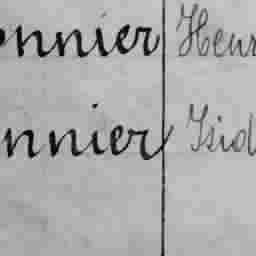 onnier Henr
nnier Isid